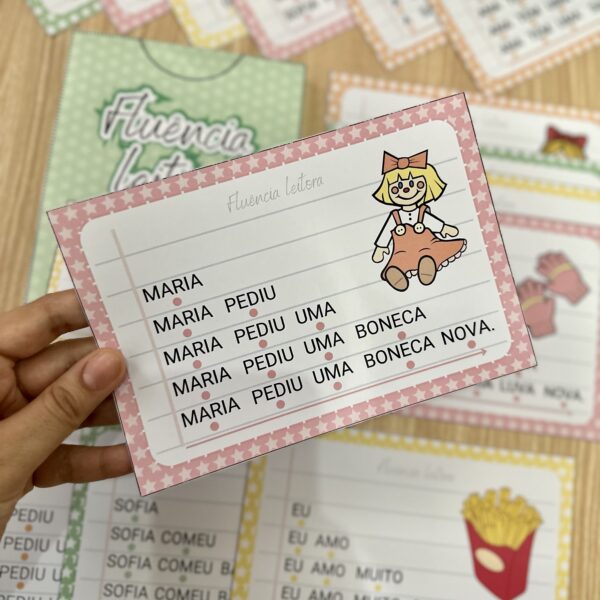 Fluência
Leitora
Fluência leitora
MARIA
MARIA PEDIU
MARIA PEDIU UMA
MARIA PEDIU UMA BONECA
MARIA PEDIU UMA BONECA NOVA.
LUVA NOVA.
PEDIU
PEDIU
PEDIU
PEDIU
SOFIA
SOFIA COMEU
SOFIA COMEU
SOFIA COMEU
Fluência leitora
EU
EU AMO
EU AMO MUITO